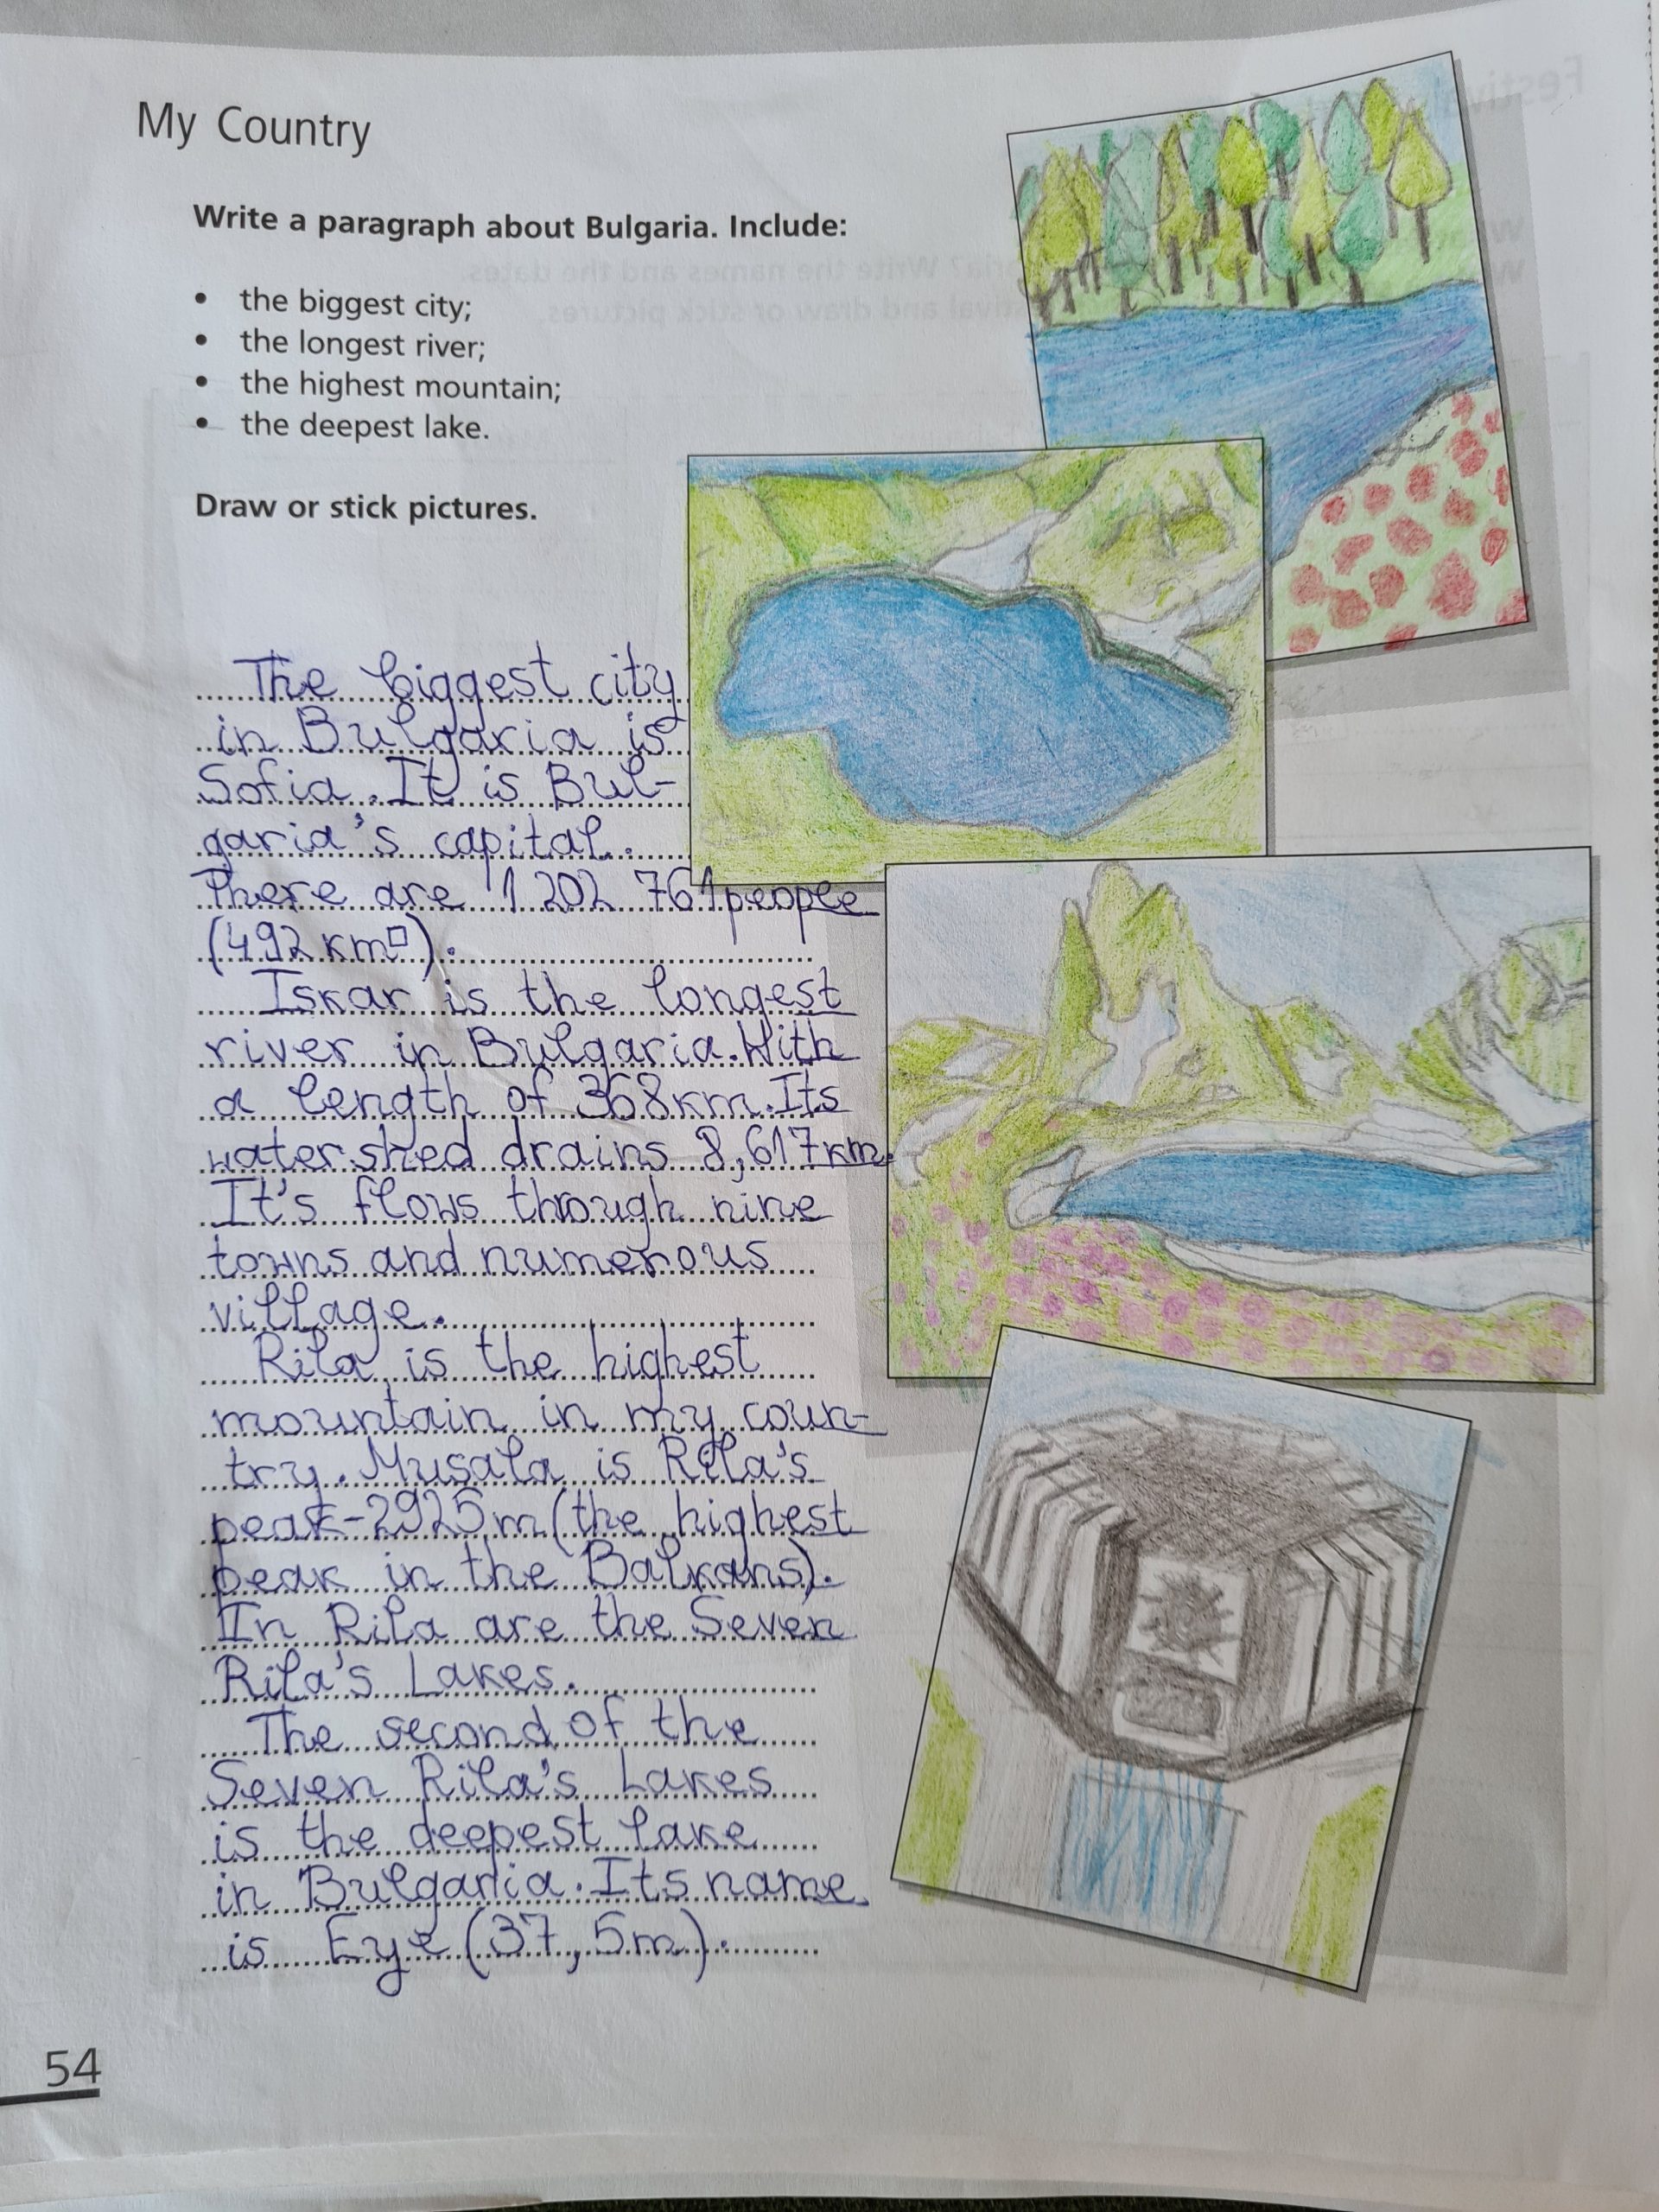 My Country
Write a paragraph about Bulgaria. Include:
• the biggest city;
• the longest river;
• the highest mountain;
• the deepest lake.
Draw or stick pictures.
The biggest city
in Bulgaria is
Sofia. It is Bul-
garia's capital.
There are 1 202 761 people
(492 km□).
Iskar is the longest
river in Bulgaria. With
a length of 368 km. Its
watershed drains 8,617 km.
It's flows through nine
towns and numerous
village.
Rila is the highest
mountain in my coun-
try. Musala is Rila's
peak-2925m (the highest
peak in the Balkans).
In Rila are the Seven
Rila's Lakes.
The second of the
Seven Rila's Lakes
is the deepest lake
in Bulgaria. Its name
is Eye (37,5m).
54